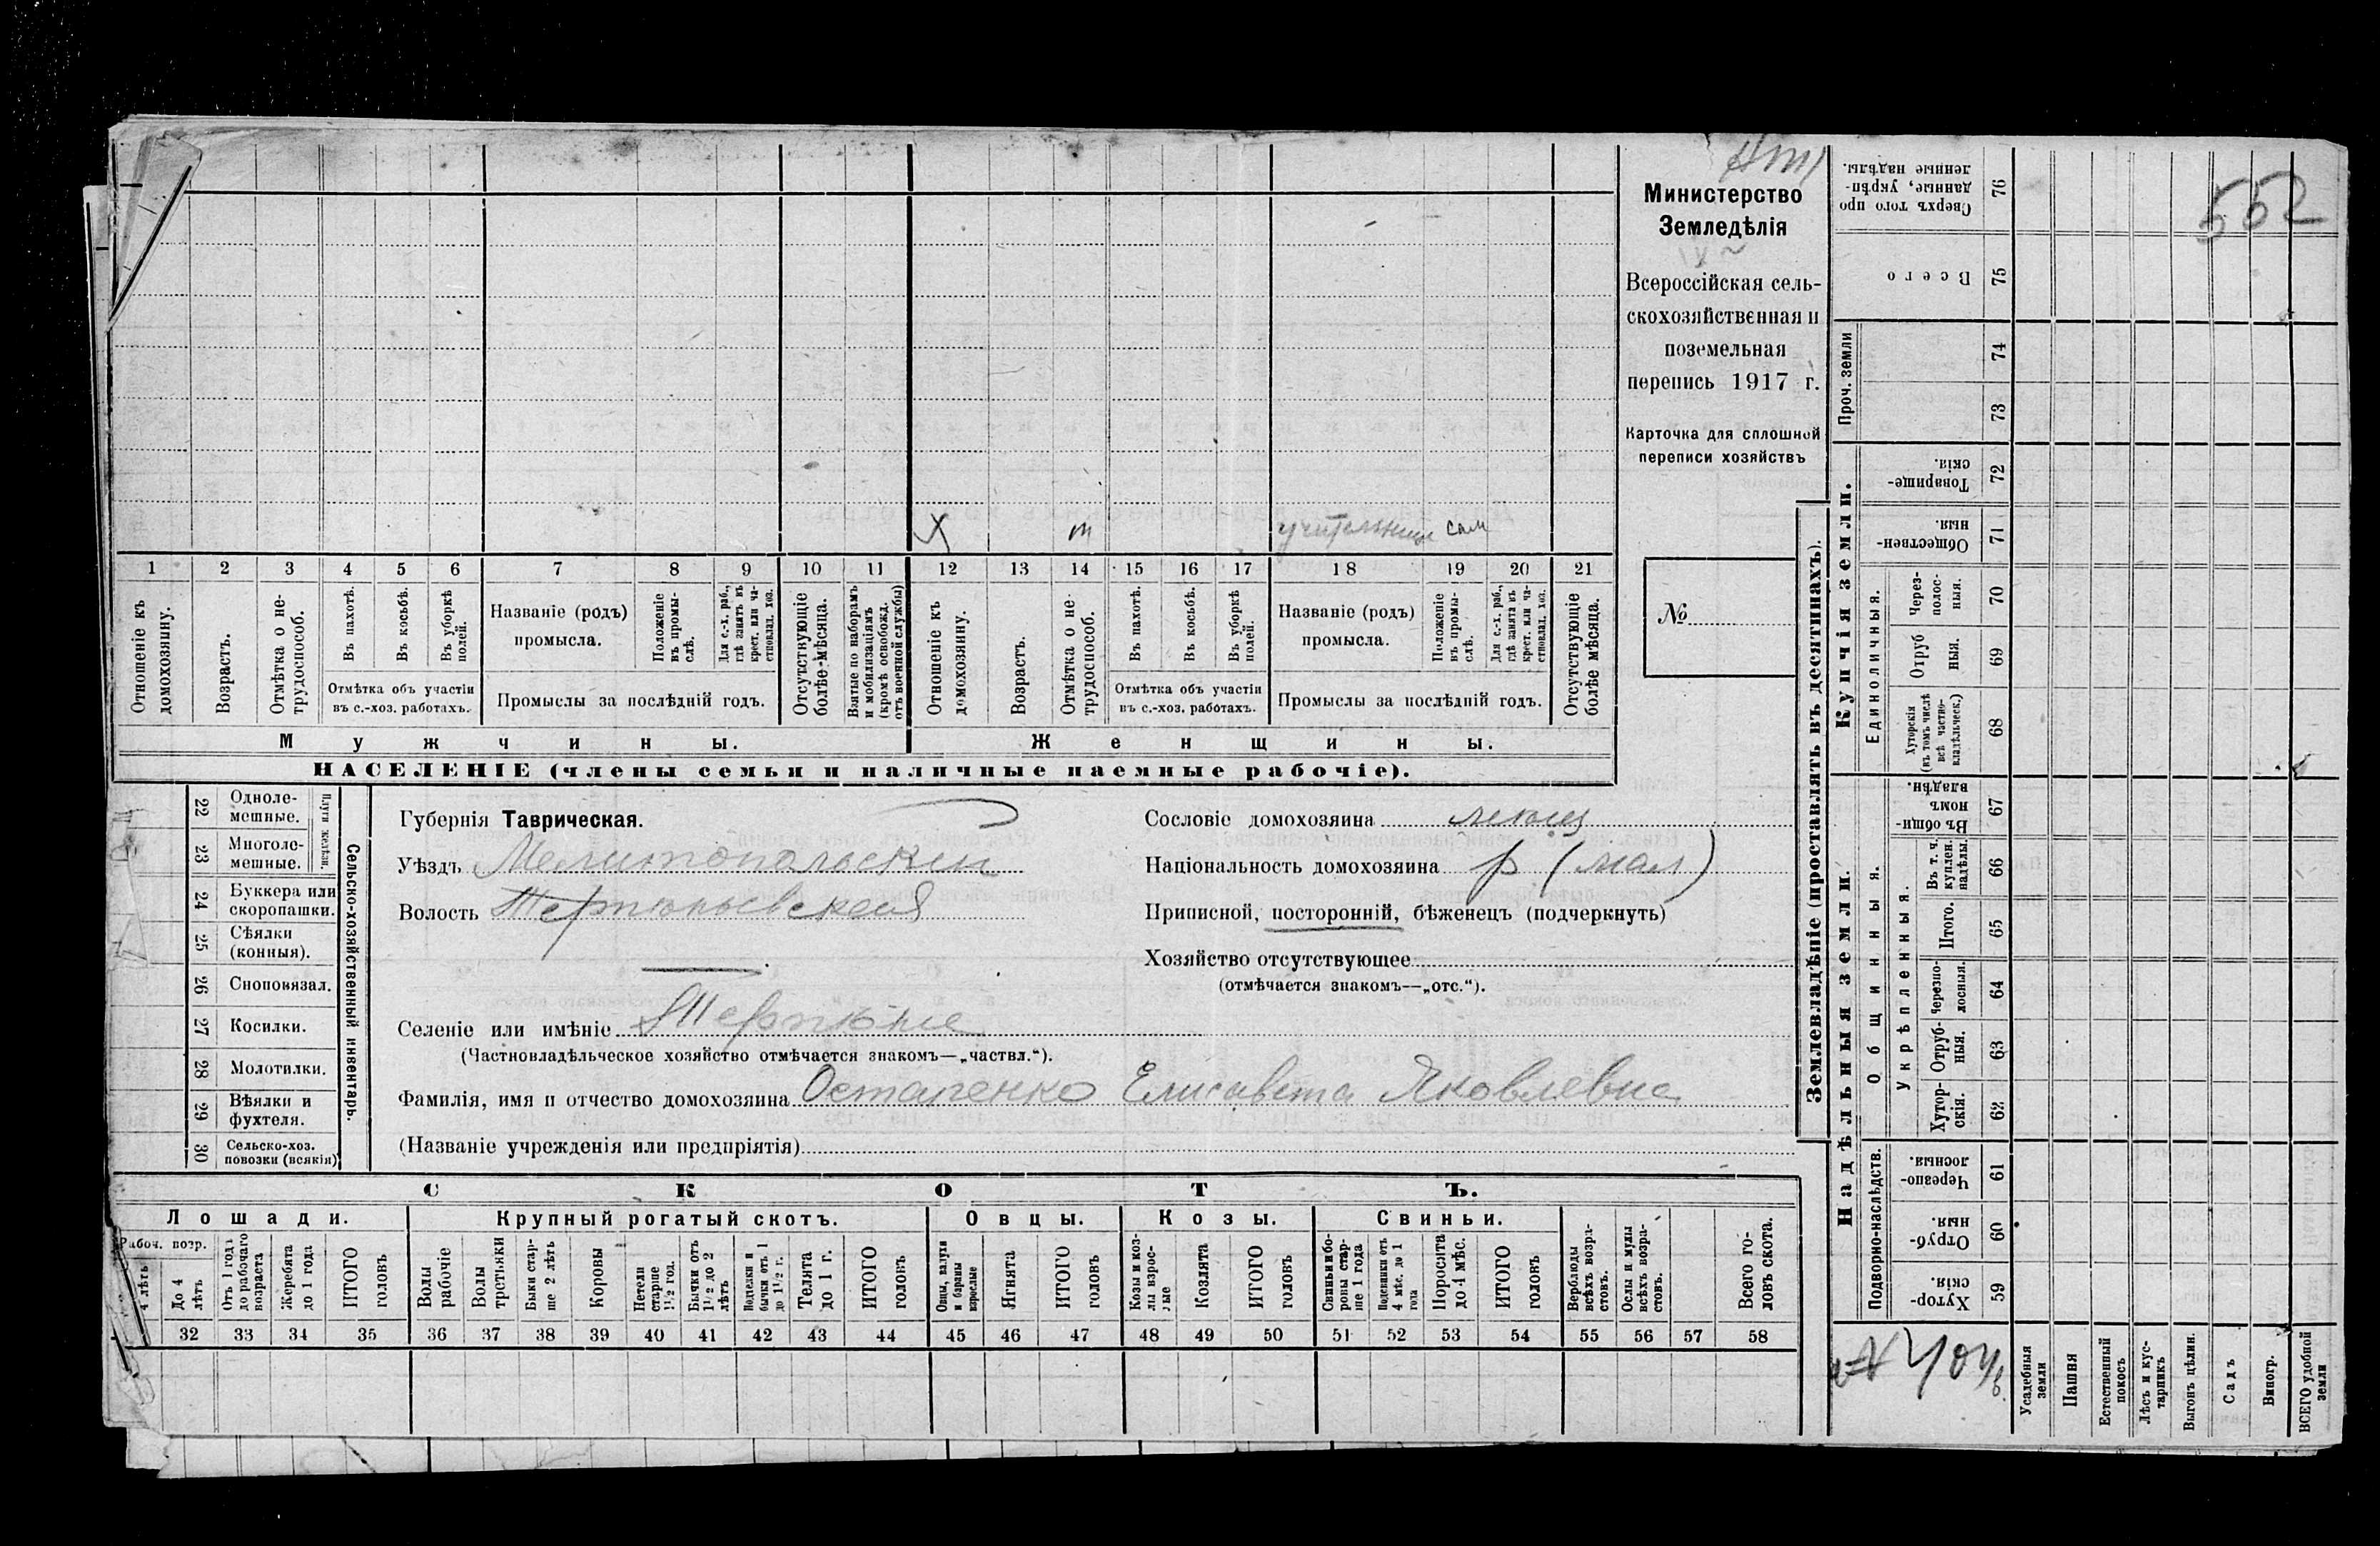 552
Министерство
Земледѣлія
Всероссійская сель-
скохозяйственная и
поземельная
перепись 1917 г.
Карточка для сплошной
переписи хозяйствъ
№
X т учительница сам
1 2 3 4 5 6 7 8 9 10 11 12 13 14 15 16 17 18 19 20 21
Отношеніе къ домохозяину.
Возрастъ.
Отмѣтка о не-трудоспособ.
Въ пахотѣ.
Въ косьбѣ.
Въ уборкѣ полей.
Отмѣтка объ участіи
въ с.-хоз. работахъ.
Названіе (родъ)
промысла.
Положеніе въ промы-слѣ.
Для с.-х. раб., гдѣ занятъ въ крест. или ча-стновлад. хоз.
Промыслы за послѣдній годъ.
Отсутствующіе болѣе мѣсяца.
Взятые по наборамъ и мобилизаціямъ (кромѣ освобожд. отъ военной службы)
Отношеніе къ домохозяину.
Возрастъ.
Отмѣтка о не трудоспособ.
Въ пахотѣ.
Въ косьбѣ.
Въ уборкѣ полей.
Отмѣтка объ участіи
въ с.-хоз. работахъ.
Названіе (родъ)
промысла.
Положеніе въ промы-слѣ.
Для с.-х. раб., гдѣ занята въ крест. или ча-стновлад. хоз.
Промыслы за послѣдній годъ.
Отсутствующіе болѣе мѣсяца.
Мужчины.
Женщины.
НАСЕЛЕНІЕ (члены семьи и наличные наемные рабочіе).
22 Одноле-мешные.
23 Многоле-мешные.
Плуги желѣзн.
24 Буккера или скоропашки.
25 Сѣялки (конныя).
26 Сноповязал.
27 Косилки.
28 Молотилки.
29 Вѣялки и фухтеля.
30 Сельско-хоз. повозки (всякія)
Сельско-хозяйственный инвентарь.
Губернія Таврическая.
Уѣздъ Мелитопольскій
Волость Терпѣньевская
Селеніе или имѣніе Терпѣніе
(Частновладѣльческое хозяйство отмѣчается знакомъ—„частвл.“).
Сословіе домохозяина
Національность домохозяина р (мал)
Приписной, посторонній, бѣженецъ (подчеркнуть)
Хозяйство отсутствующее
(отмѣчается знакомъ—„отс.“).
Фамилія, имя и отчество домохозяина Остапенко Елисавета Яковлевна
(Названіе учрежденія или предпріятія)
СКОТЪ.
Лошади.
Крупный рогатый скотъ.
Овцы.
Козы.
Свиньи.
Рабоч. возр.
4 лѣтъ
До 4 лѣтъ
Отъ 1 года до рабочаго возраста
Жеребята до 1 года
ИТОГО головъ
Волы рабочіе
Волы третьяки
Быки стар-ше 2 лѣтъ
Коровы
Нетели старше 1 1/2 год.
Бычки отъ 1 1/2 до 2 лѣтъ
Подтелки и бычки отъ 1 до 1 1/2 г.
Телята до 1 г.
ИТОГО головъ
Овцы, валухи и бараны взрослые
Ягнята
ИТОГО головъ
Козы и коз-лы взрос-лые
Козлята
ИТОГО головъ
Свиньи и бо-ровы стар-ше 1 года
Подсвинки отъ 4 мѣс. до 1 года
Поросята до 4 мѣс.
ИТОГО головъ
Верблюды всѣхъ возра-стовъ.
Ослы и мулы всѣхъ возра-стовъ.
Всего го-ловъ скота.
32 33 34 35 36 37 38 39 40 41 42 43 44 45 46 47 48 49 50 51 52 53 54 55 56 57 58
Землевладѣніе (проставлять въ десятинахъ).
Проч. земли
Купчія земли.
Единоличныя.
Надѣльныя земли.
Общинныя.
Укрѣпленныя.
Подворно-наслѣдств.
Сверхъ того про данные, укрѣп-ленные надѣлы. 76
Всего 75
74
73
Товарище-скія. 72
Обществен-ныя. 71
Через-полос-ныя. 70
Отруб ныя. 69
Хуторскія (въ томъ числѣ всѣ частно-владѣльческ.) 68
Въ общи-номъ владѣн. 67
Въ т. ч. куплен. надѣлы. 66
Итого. 65
Черезпо-лосныя. 64
Отруб-ныя. 63
Хутор-скія. 62
Черезпо-лосныя. 61
Отруб-ныя. 60
Хутор-скія. 59
Усадебныя земли
Пашня
Естественный покосъ
Лѣсъ и кус-тарникъ
Выгонъ цѣлин.
Садъ
Виногр.
ВСЕГО удобной земли